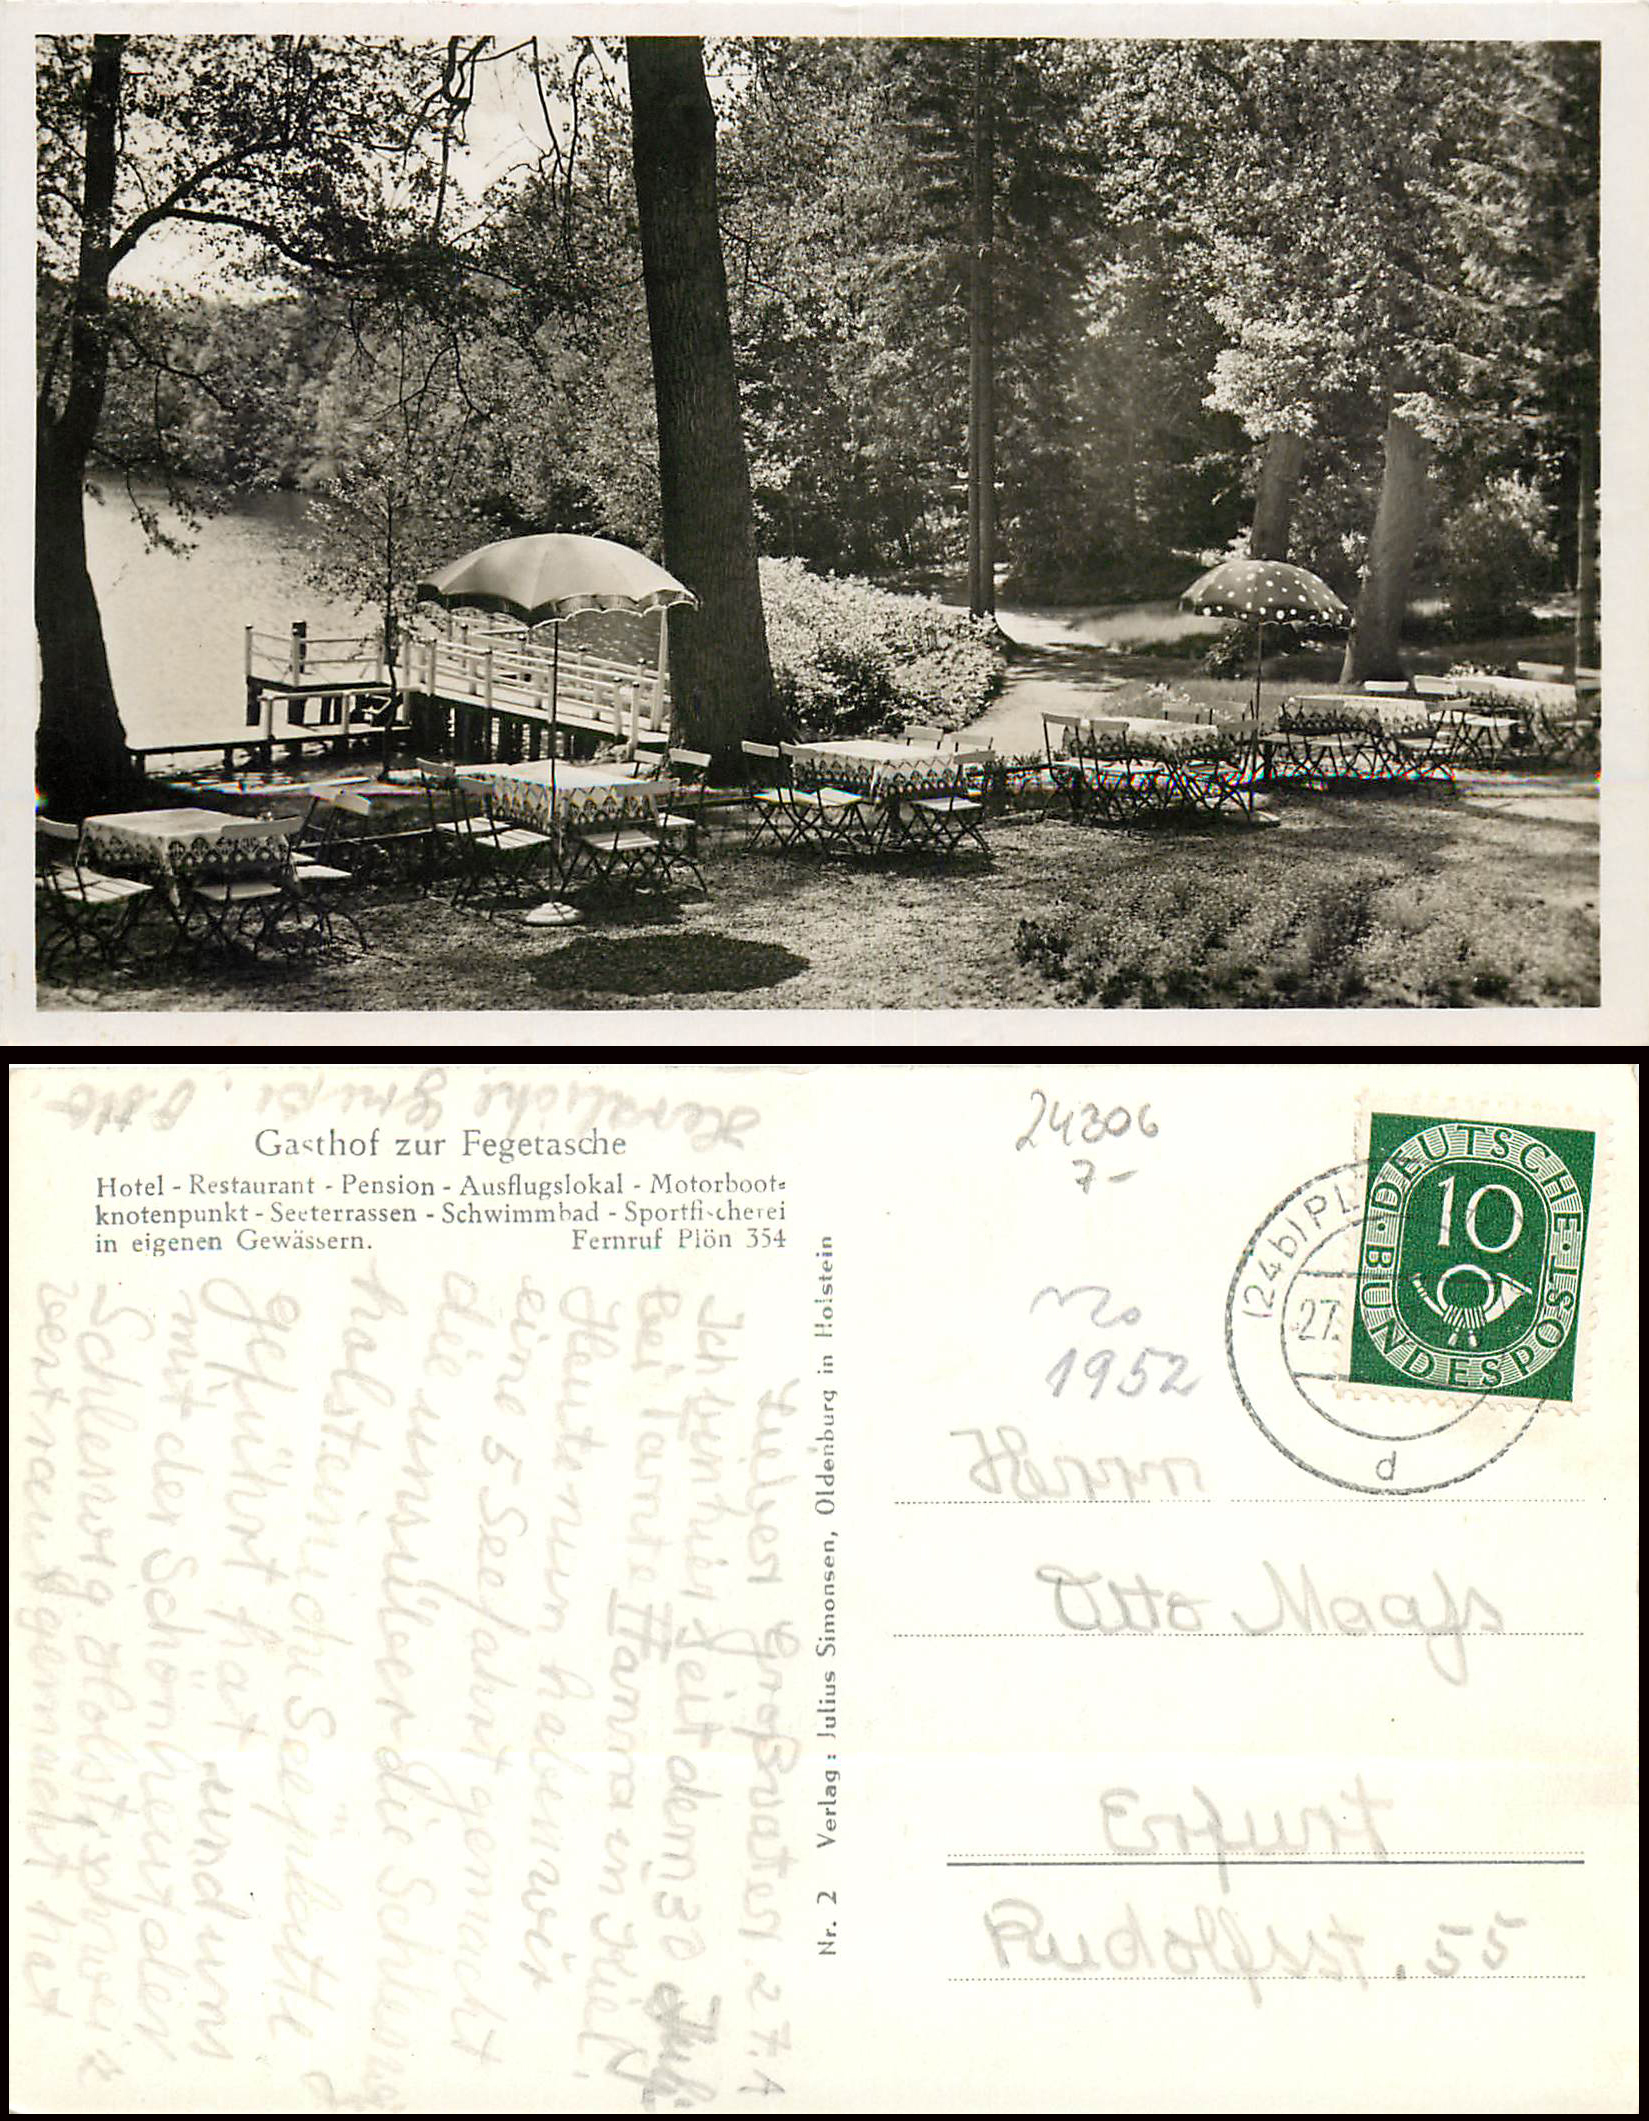 Gasthof zur Fegetasche
Hotel - Restaurant - Pension - Ausflugslokal - Motorboot-
knotenpunkt - Seeterrassen - Schwimmbad - Sportfischerei
in eigenen Gewässern. Fernruf Plön 354
Herzliche Grüße. Otto.
Lieber Großvater! 27.
Ich bin hier seit dem 30 Juli
Bei Tante Hanna in Kiel.
Heute nun haben wir
eine 5 Seefahrt gemacht
die uns über die Schleswig
holsteinische Seeplatte
geführt hat und uns
mit der Schönheit der
Schleswig Holsty
vertraut gemacht hat
Nr. 2 Verlag: Julius Simonsen, Oldenburg in Holstein
24306
7-
1952
DEUTSCHE BUNDESPOST
10
(24b) PL
27.
d
Herrn
Otto Maaß
Erfurt
Rudolfst. 55